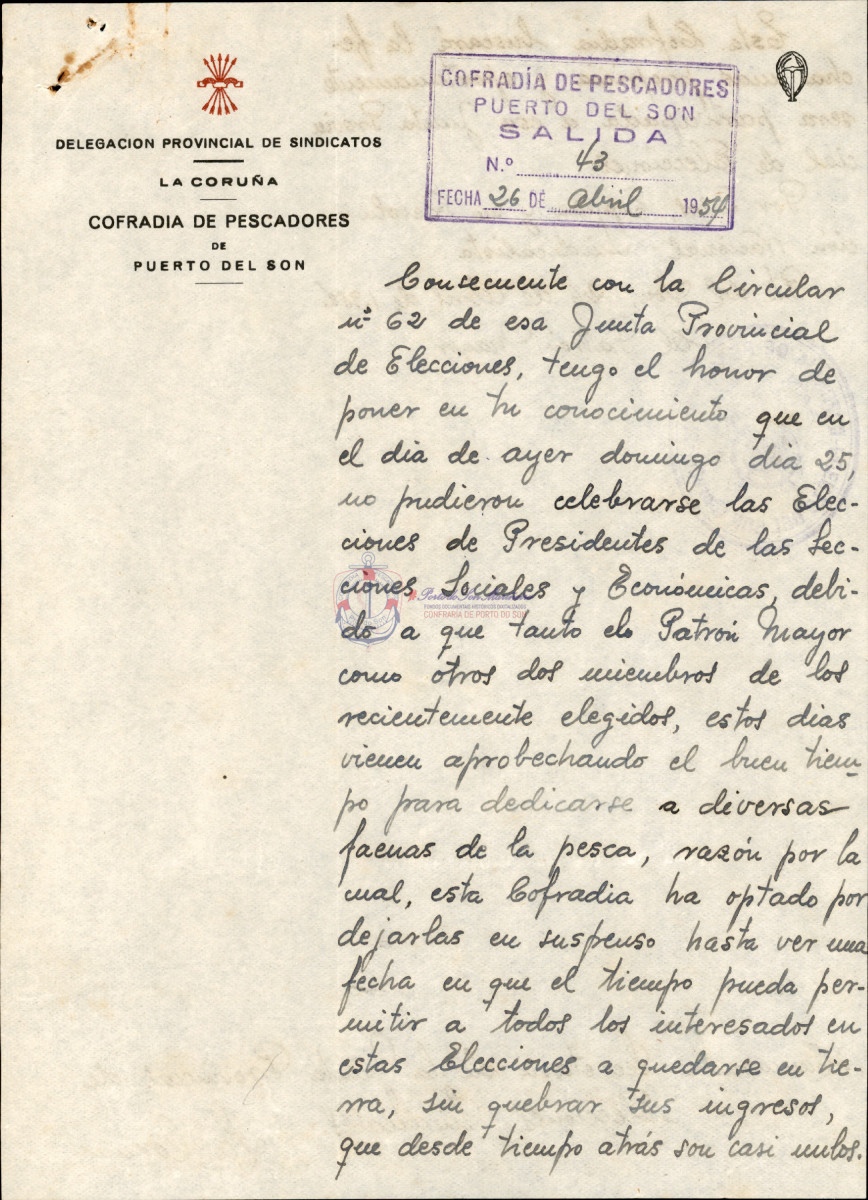 DELEGACION PROVINCIAL DE SINDICATOS
LA CORUÑA
COFRADIA DE PESCADORES
DE
PUERTO DEL SON
COFRADÍA DE PESCADORES
PUERTO DEL SON
SALIDA
N.º 43
FECHA 26 DE Abril 1954
Consecuente con la Circular
nº 62 de esa Junta Provincial
de Elecciones, tengo el honor de
poner en tu conocimiento que en
el dia de ayer domingo dia 25,
no pudieron celebrarse las Elec-
ciones de Presidentes de las Sec-
ciones Sociales y Económicas, debi-
do a que tanto elo Patrón Mayor
como otros dos miembros de los
recientemente elegidos, estos dias
vienen aprobechando el buen tiem-
po para dedicarse a diversas
faenas de la pesca, razón por la
cual, esta Cofradia ha optado por
dejarlas en suspenso hasta ver una
fecha en que el tiempo pueda per-
mitir a todos los interesados en
estas Elecciones a quedarse en tie-
rra, sin quebrar sus ingresos,
que desde tiempo atrás son casi nulos.
FONDOS DOCUMENTAIS HISTÓRICOS DIXITALIZADOS
CONFRARÍA DE PORTO DO SON